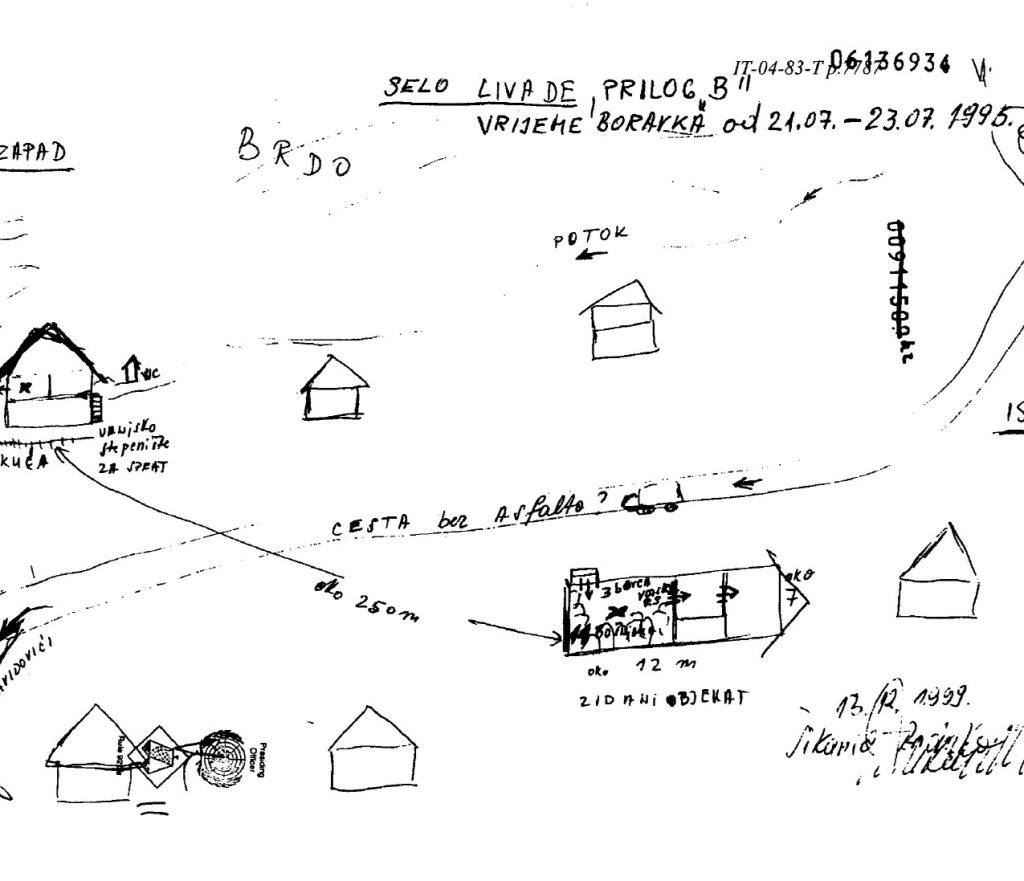 IT-04-83-T p.7787
06136934
SELO LIVADE „PRILOG B"
VRIJEME BORAVKA od 21.07. – 23.07. 1995.
ZAPAD
BRDO
POTOK
00911450
WC
VANJSKO
stepenište
ZA SPRAT
KUĆA
IS
CESTA bez ASfalta?
oko 250 m
3 borca
oko
7
oko 12 m
ZIDANI OBJEKAT
13. 12. 1999.
Presiding
Officer